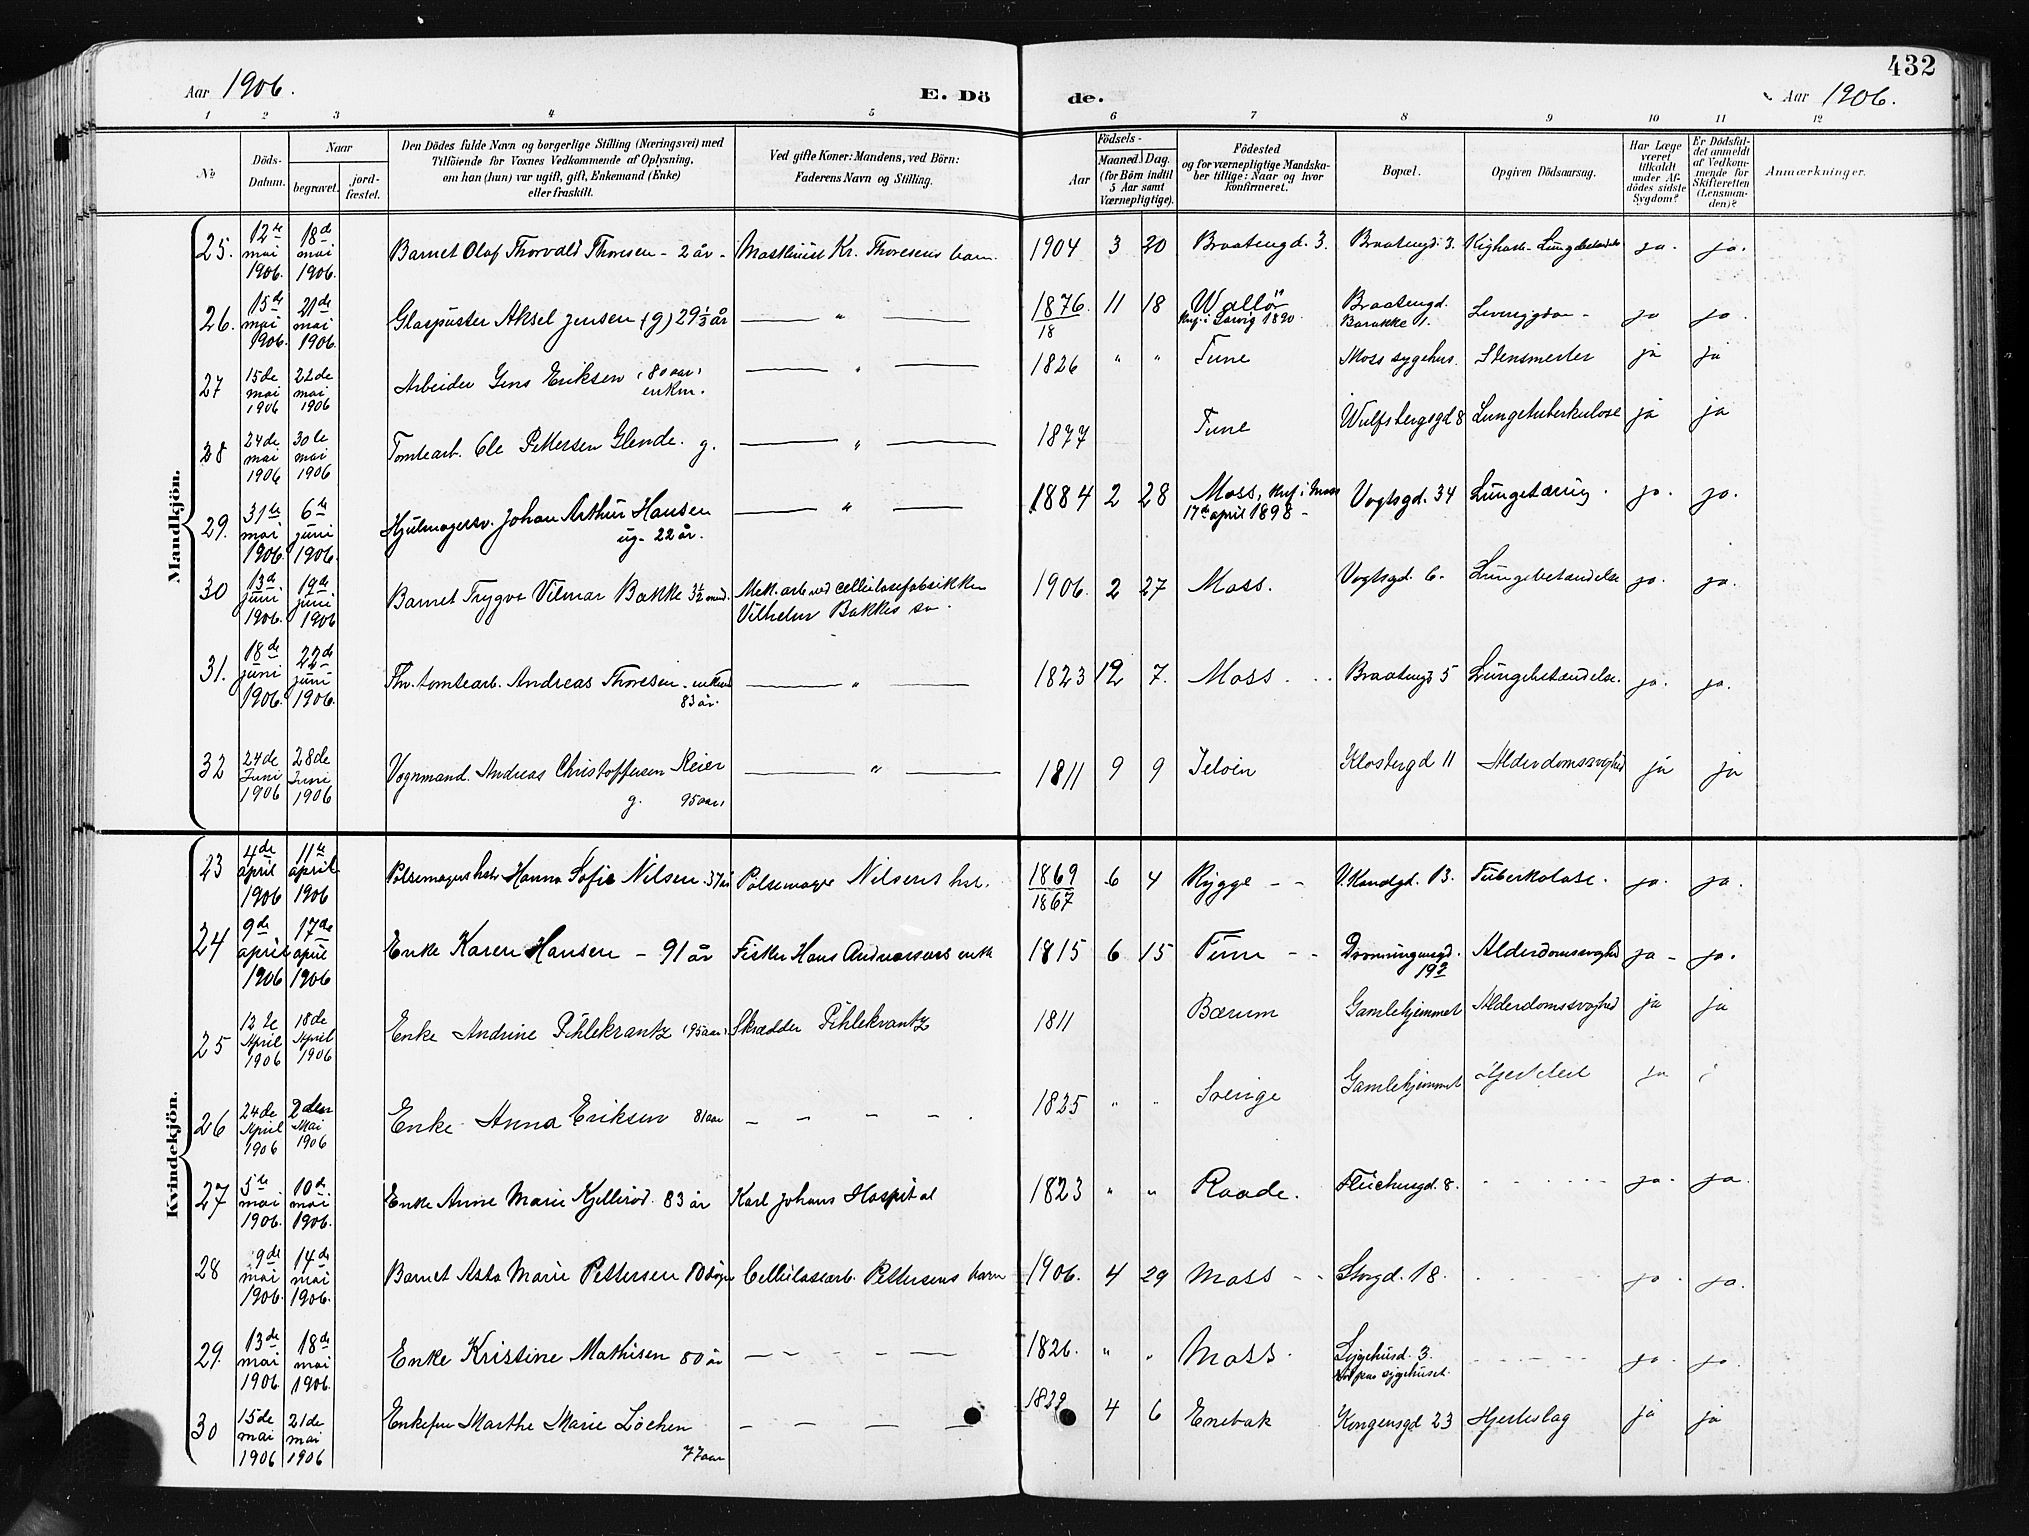 432
Aar 1906.
E. Döde.
Aar 1906.
1 2 3 4 5 6 7 8 9 10 11 12
№
Döds-Datum.
Naar
begravet.
jord-fæstet.
Den Dödes fulde Navn og borgerlige Stilling (Næringsvei) med
Tilföiende for Voxnes Vedkommende af Oplysning,
om han (hun) var ugift, gift, Enkemand (Enke)
eller fraskilt.
Ved gifte Koner: Mandens, ved Börn:
Faderens Navn og Stilling.
Födsels-
Aar
Maaned. Dag.
(for Börn indtil
5 Aar samt
Værnepligtige).
Födested
og for værnepligtige Mandska-
ber tillige: Naar og hvor
konfirmeret.
Bopæl.
Opgiven Dödsaarsag.
Har Læge
været
tilkaldt
under Af-
dödes sidste
Sygdom?
Er Dödsfal-
det anmeldt
af Vedkom-
mende for
Skifteretten
(Lensman-
den)?
Anmærkninger.
Mandkjön.
25. 12te mai 1906. 18de mai 1906. Barnet Olaf Thorvald Thoresen - 2 år - Maskinist Kr. Thoresens barn. 1904 3 20 Braatengd. 3. Braatengd. 3. Kighoste- Lungebetændelse ja. ja.
26. 15de mai 1906. 21de mai 1906. Glaspuster Aksel Jensen (g) 29 1/3 år — " — 1876 / 18 11 18 Wallö Knf. i Larvig 1890. Braatengd. Barakke 1. ja ja.
27 15de mai 1906 22de mai 1906 Arbeider Jens Eriksen (80 aar) enkm. — " — 1826 " " Tune Moss sygehus. Stensmerter ja ja
28 24de mai 1906 30te mai 1906 Tomtearb. Ole Pettersen Glende. g. — " — 1877 Tune Wulfsbergsgd 8 Lungetuberkulose ja ja
29. 31te mai 1906. 6te juni 1906. Hjulmagersv. Johan Arthur Hansen ug. 22 år. — " — 1884 2 28 Moss, Knf. i Moss 17de april 1898 - Vogtsgd. 34 Lungetæring. ja. ja.
30 13de juni 1906. 19de juni 1906 Barnet Trygve Vilmar Bakke 3½ mnd. Mek. arb. ved cellulosefabrikken Vilhelm Bakkes sn. 1906. 2 27 Moss. Vogtsgd. 6. Lungebetændelse ja. ja.
31. 18de juni 1906. 22de juni 1906. Fhv. tomtearb. Andreas Thoresen. enkmd 83 år. — " — 1823 12 7. Moss. Braatengd 5 Lungebetændelse. ja. ja.
32 24de Juni 1906 28de Juni 1906 Vognmand. Andreas Christoffersen Reier g. 95 aar, — " — 1811 9 9 Jeløen Klostergd 11 Alderdomssvaghed ja ja
Kvindekjön.
23 4de april 1906 11te april 1906 Pølsemagerhstr Hanna Sofie Nilsen. 37 år Pølsemager Nilsens hst. 1869 / 1867 6 4 Rygge - - V. Kanalgd. 13. Tuberkolose. ja. ja.
24 9de april 1906 17de april 1906 Enke Karen Hansen - 91 år Fisker Hans Andreassens enke 1815 6 15 Tune - - Dronningensgd. 19 Alderdomssvaghed ja - ja.
25 12te April 1906 18de April 1906 Enke Andrine Pihlekrantz (95 aar) Skrædder Pihlekrantz 1811 Bærum Gamlehjemmet Alderdomssvaghed ja ja
26 24de April 1906 2den Mai 1906 Enke Anna Eriksen 81 aar - - - - 1825 " " Sverige Gamlehjemmet Hjertefeil ja
27 5te mai 1906. 10de mai 1906. Enke Anne Marie Kjellerød. 83 år Karl Johans Hospital 1823 " " Raade. 8. - - - ja. ja.
28 9de mai 1906. 14de mai 1906. Barnet Asta Marie Pettersen 10 døgn Cellulosearb. Pettersens barn 1906. 4 29 Moss - - Storgd. 18. - - - ja. ja.
29. 13de mai 1906. 18de mai 1906. Enke Kristine Mathisen 80 år - - - - - 1826. " " Moss. 3. sygehuset. - - - ja. ja.
30 15de mai 1906 21de mai 1906 Enkefru Marthe Marie Løchen 77 aar - - - - 1829 4 6 Enebak Kongensgd 23 Hjerteslag ja ja